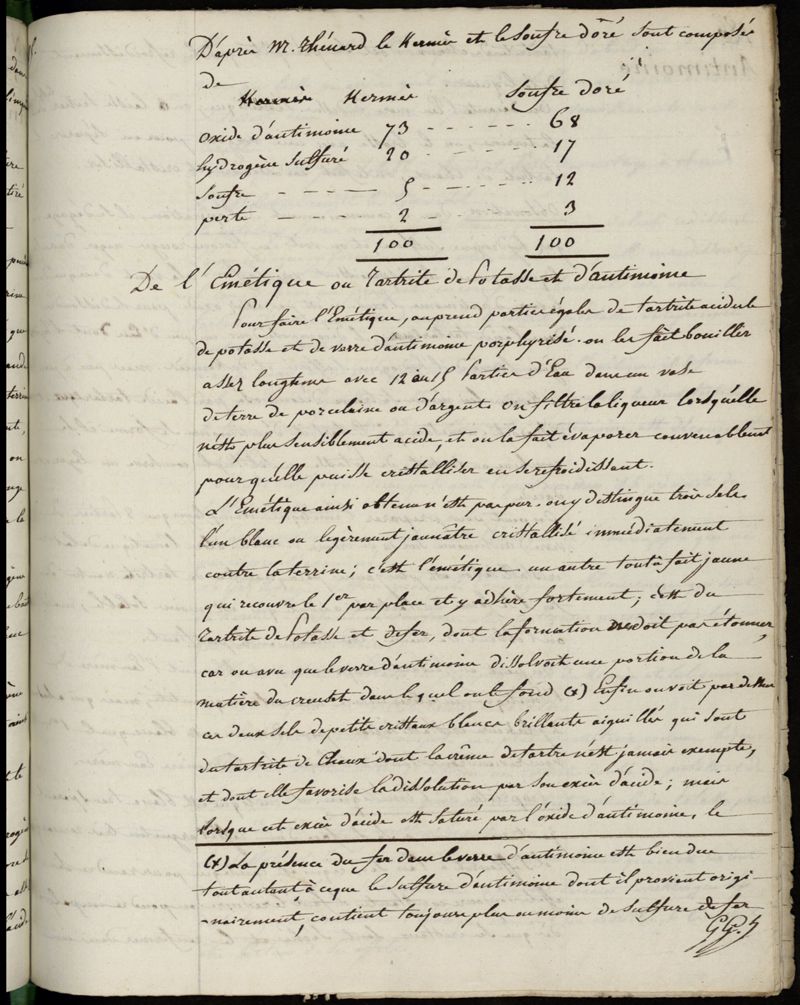 D'après M. Thénard le Kermès et le Soufre doré sont composés
de
Kermès Kermès Soufre doré
oxide d'antimoine 73 - - - - - - 68
hydrogène sulfuré 20 - - - - - - 17
Soufre - - - - 5 - - - - - - 12
perte - - - - 2 - - - 3
100 100
De l'Emétique ou Tartrite de Potasse et d'antimoine
Pour faire l'Emétique, on prend parties égales de tartrite acidule
de potasse et de verre d'antimoine porphyrisé. on les fait bouillir
assez longtems avec 12 au 15 Parties d'Eau dans un vase
de terre de porcelaine ou d'argent. On filtre la liqueur lorsqu'elle
n'est plus sensiblement acide, et on la fait évaporer convenablement
pour qu'elle puisse cristalliser en se refroidissant.
L'Emétique ainsi obtenu n'est pas pur. on y distingue trois sels.
l'un blanc ou légèrement jaunâtre cristallisé immédiatement
contre la terrine; c'est l'émétique. un autre tout à fait jaune
qui recouvre le 1er par place et y adhère fortement; c'est du
Tartrite de Potasse et de fer, dont la formation ne doit pas étonner,
car on a vu que le verre d'antimoine dissolvoit une portion de la
matière du creuset dans lequel on le fond (x) Enfin on voit par dessus
ces deux sels de petits cristaux blancs brillants aiguillés qui sont
du tartrite de Chaux dont la crême de tartre n'est jamais exempte,
et dont elle favorise la dissolution par son excès d'acide; mais
lorsque cet excès d'acide est saturé par l'oxide d'antimoine, le
(x) La présence du fer dans le verre d'antimoine est bien due
tout autant à ce que le sulfure d'antimoine dont il provient origi-
-nairement, contient toujours plus ou moins de sulfure de fer